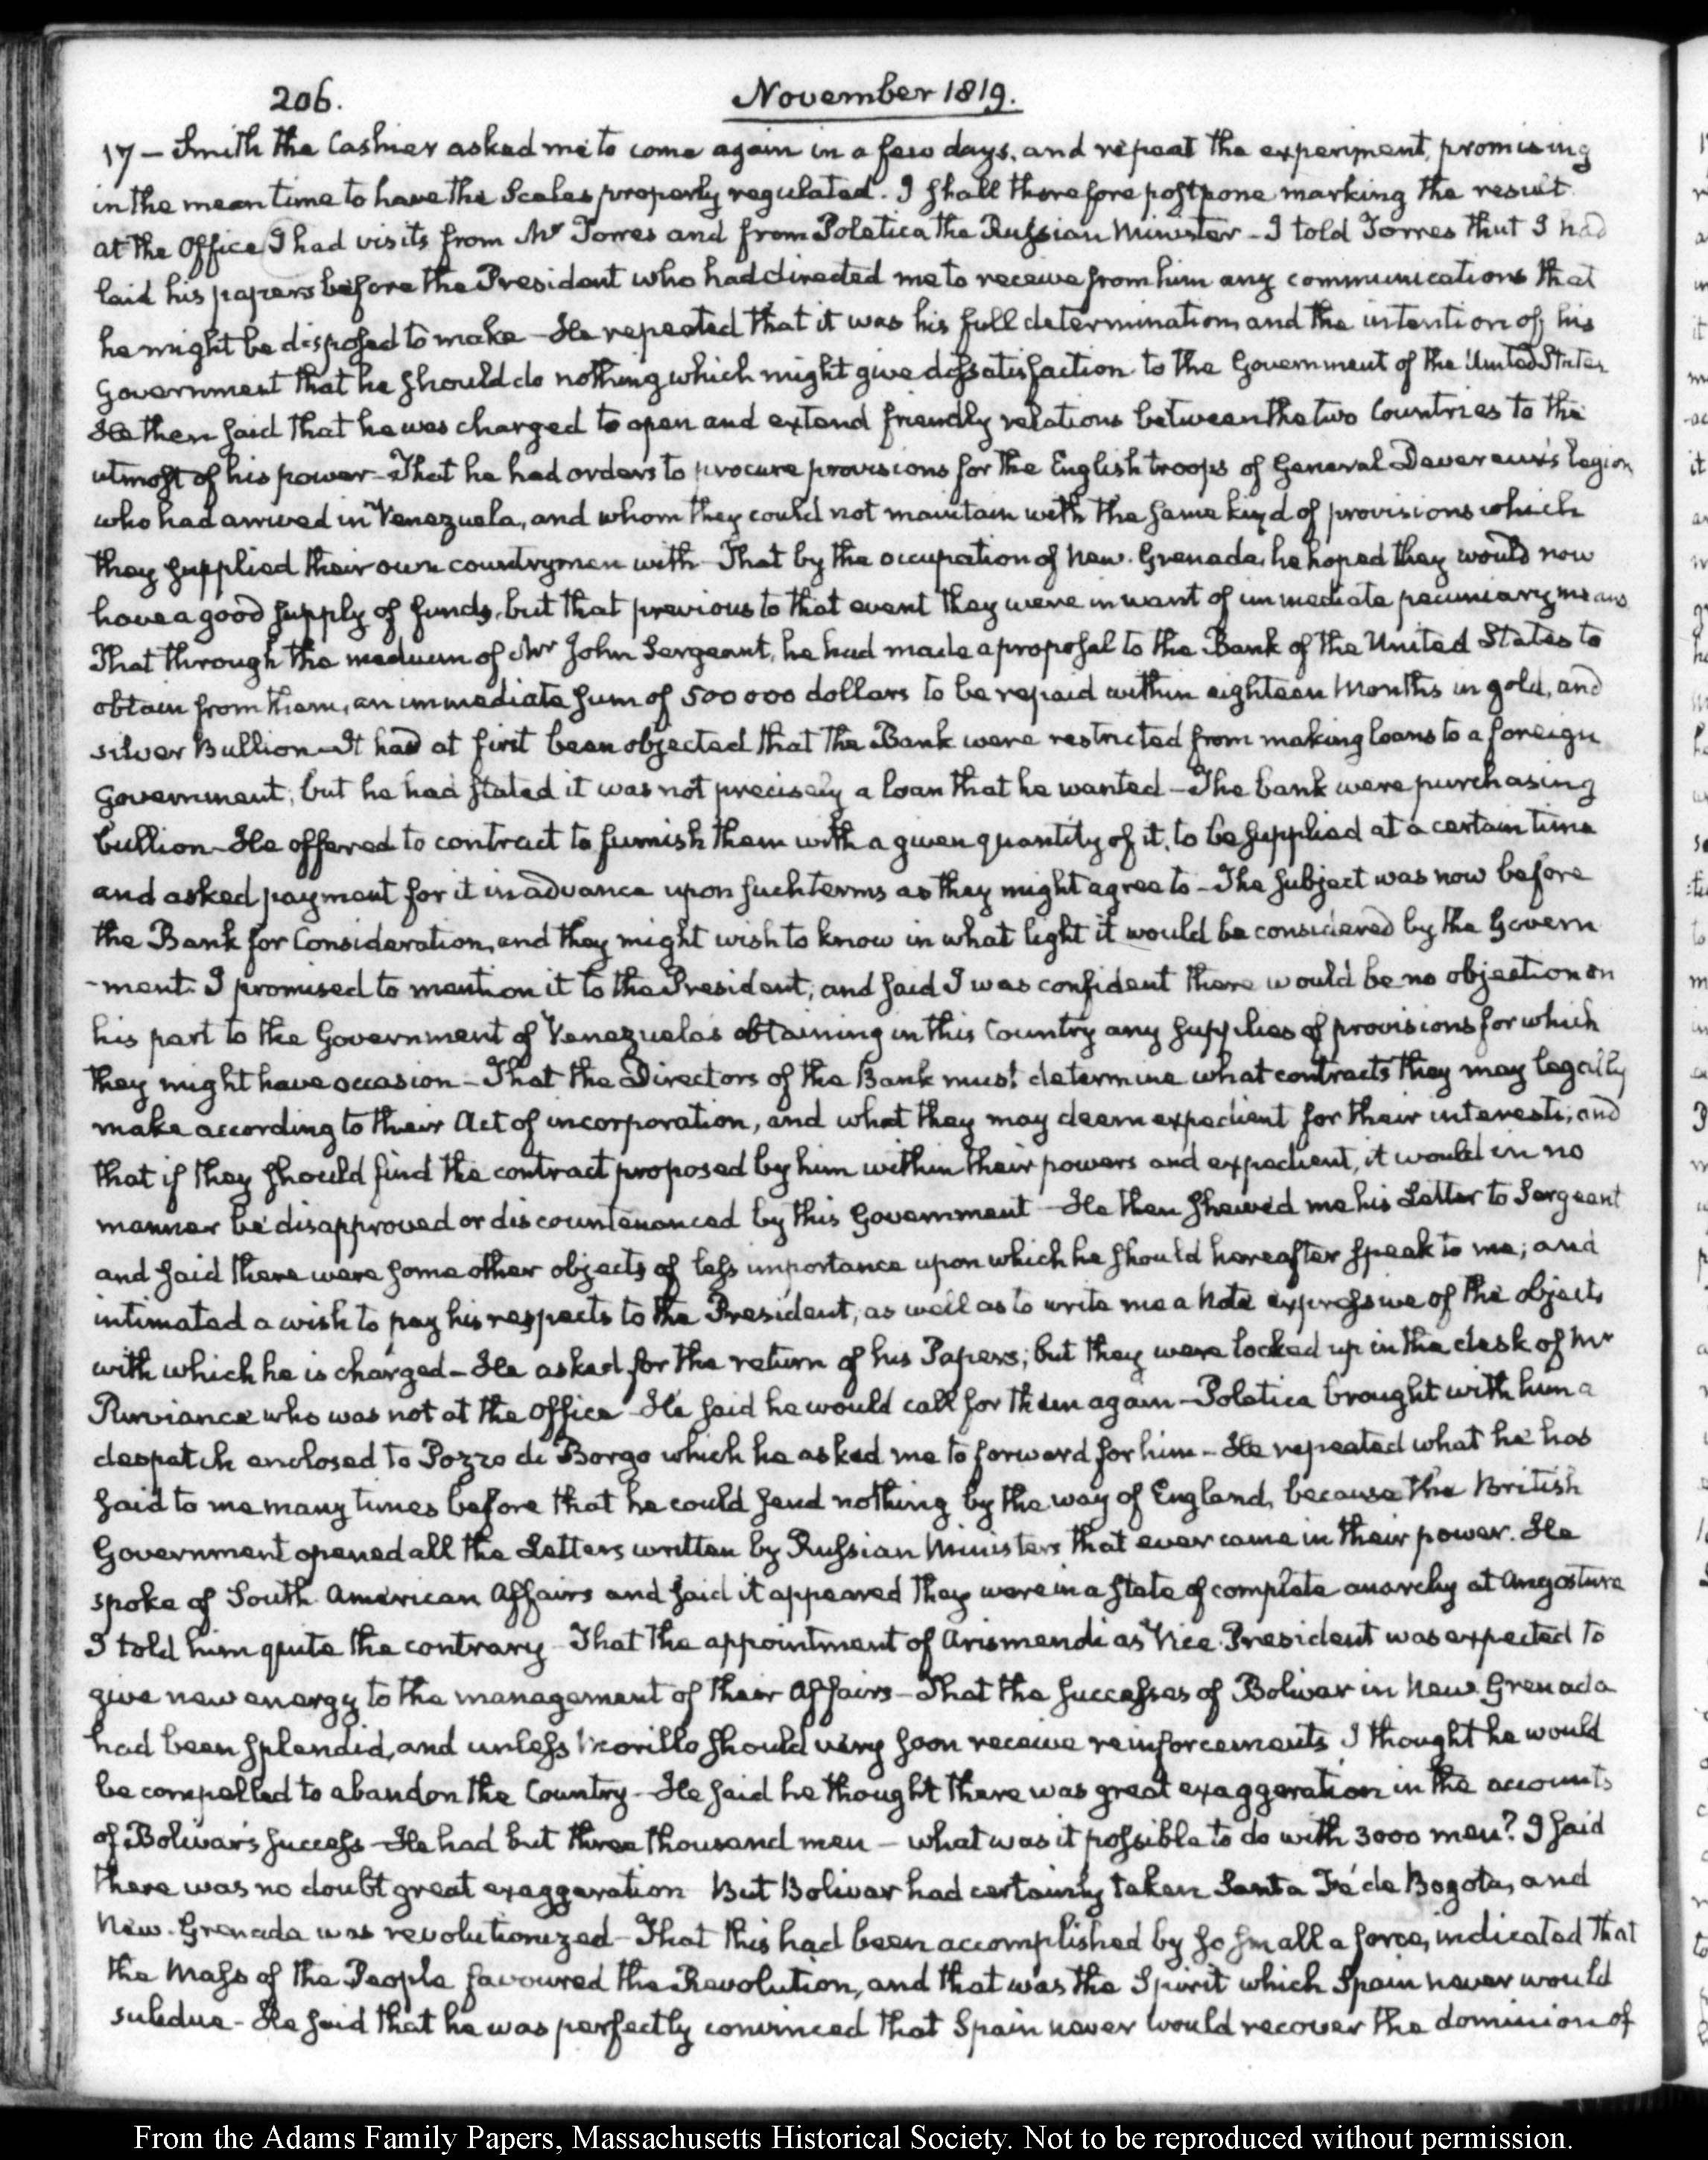 206.
November 1819.
17 — Smith the Cashier asked me to come again in a few days, and repeat the experiment, promising
in the mean time to have the Scales properly regulated. I shall therefore postpone marking the result.
at the Office I had visits from Mr Torres and from Poletica the Russian Minister — I told Torres that I had
laid his papers before the President who had directed me to receive from him any communications that
he might be disposed to make — He repeated that it was his full determination and the intention of his
Government that he should do nothing which might give dissatisfaction to the Government of the United States
He then said that he was charged to open and extend friendly relations between the two Countries to the
utmost of his power — That he had orders to procure provisions for the English troops of General Devereux's legion
who had arrived in Venezuela, and whom they could not maintain with the same kind of provisions which
they supplied their own countrymen with — That by the occupation of New-Grenada, he hoped they would now
have a good supply of funds, but that previous to that event they were in want of immediate pecuniary means
That through the medium of Mr John Sergeant, he had made a proposal to the Bank of the United States to
obtain from them, an immediate sum of 500000 dollars to be repaid within eighteen Months in gold, and
silver Bullion — It had at first been objected that the Bank were restricted from making loans to a foreign
Government; but he had stated it was not precisely a loan that he wanted — The bank were purchasing
bullion — He offered to contract to furnish them with a given quantity of it, to be supplied at a certain time
and asked payment for it in advance upon such terms as they might agree to — The subject was now before
the Bank for Consideration, and they might wish to know in what light it would be considered by the Govern
-ment. I promised to mention it to the President; and said I was confident there would be no objection on
his part to the Government of Venezuela's obtaining in this Country any supplies of provisions for which
they might have occasion — That the Directors of the Bank must determine what contracts they may legally
make according to their Act of incorporation, and what they may deem expedient for their interests; and
that if they should find the contract proposed by him within their powers and expedient, it would in no
manner be disapproved or discountenanced by this Government — He then shewed me his Letter to Sergeant
and said there were some other objects of less importance upon which he should hereafter speak to me; and
intimated a wish to pay his respects to the President, as well as to write me a Note expressive of the objects
with which he is charged — He asked for the return of his Papers; but they were locked up in the desk of Mr
Purviance who was not at the Office — He said he would call for them again — Poletica brought with him a
despatch enclosed to Pozzo di Borgo which he asked me to forward for him — He repeated what he has
said to me many times before that he could send nothing by the way of England, because the British
Government opened all the Letters written by Russian Ministers that ever came in their power. He
spoke of South American Affairs and said it appeared they were in a state of complete anarchy at Angostura
I told him quite the contrary — That the appointment of Arismendi as Vice-President was expected to
give new energy to the management of their Affairs — That the successes of Bolivar in New-Grenada
had been splendid, and unless Morillo should very soon receive reinforcements I thought he would
be compelled to abandon the Country — He said he thought there was great exaggeration in the accounts
of Bolivar's success — He had but three thousand men — what was it possible to do with 3000 men? I said
there was no doubt great exaggeration But Bolivar had certainly taken Santa Fé de Bogota, and
New-Grenada was revolutionized — That this had been accomplished by so small a force, indicated that
the Mass of the People favoured the Revolution, and that was the Spirit which Spain never would
subdue — He said that he was perfectly convinced that Spain never would recover the dominion of
From the Adams Family Papers, Massachusetts Historical Society. Not to be reproduced without permission.